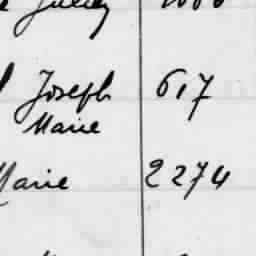 Joseph 617
Marie
Marie 2274